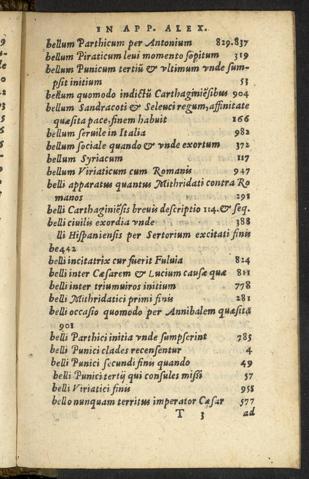 IN APP. ALEX.
bellum Parthicum per Antonium 829.837
bellum Piraticum leui momento sopitum 319
bellum Punicum tertiũ & vltimum vnde sum-
psit initium 53
bellum quomodo indictũ Carthaginiẽsibus 904
bellum Sandracoti & Seleuci regum, affinitate
quæsita pace, finem habuit 166
bellum seruile in Italia 982
bellum sociale quando & vnde exortum 372
bellum Syriacum 117
bellum Viriaticum cum Romanis 947
belli apparatus quantus Mithridati contra Ro
manos 291
belli Carthaginẽsis breuis descriptio 114. & seq.
belli ciuilis exordia vnde 388
lli Hispaniensis per Sertorium excitati finis
be442
belli incitatrix cur fuerit Fuluia 814
belli inter Cæsarem & Lucium causæ quæ 811
belli inter triumuiros initium 778
belli Mithridatici primi finis 281
belli occasio quomodo per Annibalem quæsita
901
belli Parthici initia vnde sumpserint 785
belli Punici clades recensentur 4
belli Punici secundi finis quando 49
belli Punici tertij qui consules missi 57
belli Viriatici finis 958
bello nunquam territus imperator Cæsar 577
T 3 ad